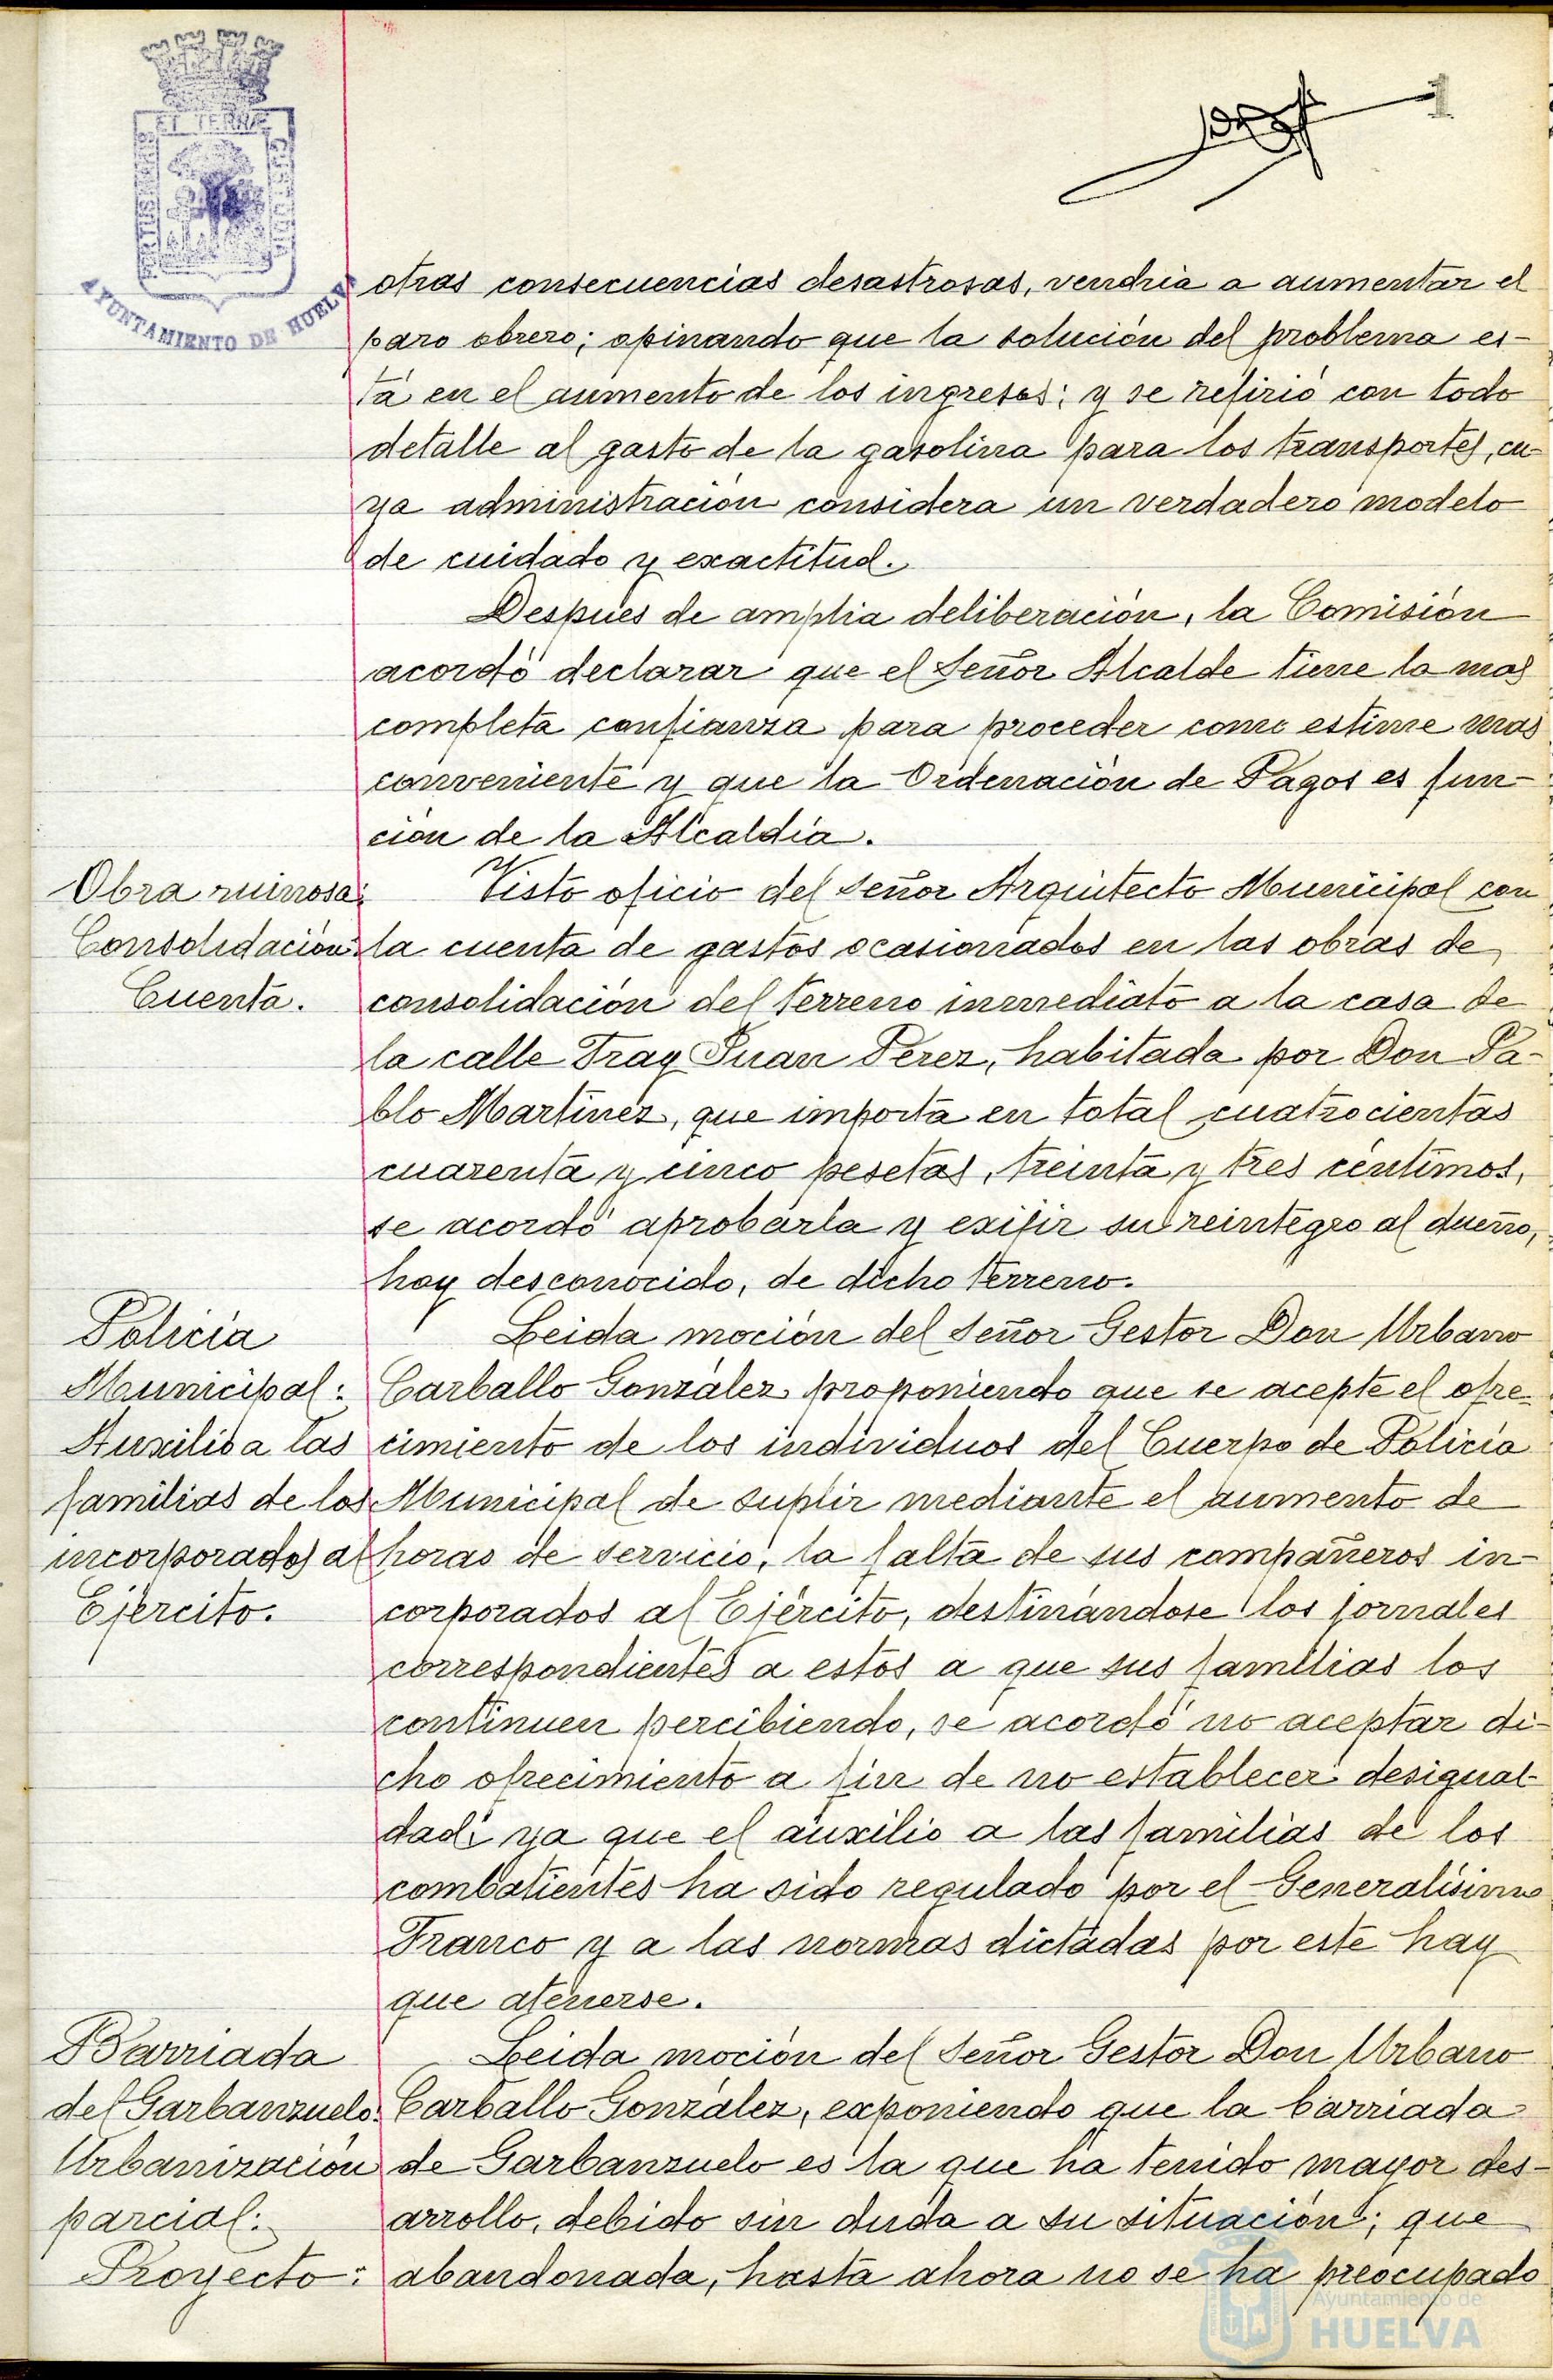 ET TERRÆ
AYUNTAMIENTO DE HUELVA
1
otras consecuencias desastrosas, vendria a aumentar el
paro obrero; opinando que la solución del problema es-
tá en el aumento de los ingresos; y se refirió con todo
detalle al gasto de la gasolina para los transportes, cu-
ya administración considera un verdadero modelo
de cuidado y exactitud.
Después de amplia deliberación, la Comisión
acordó declarar que el Señor Alcalde tiene la mas
completa confianza para proceder como estime mas
conveniente y que la Ordenación de Pagos es fun-
ción de la Alcaldía.
Obra ruinosa:
Consolidación:
Cuenta.
Visto oficio del Señor Arquitecto Municipal con
la cuenta de gastos ocasionados en las obras de
consolidación del terreno inmediato a la casa de
la calle Fray Juan Pérez, habitada por Don Pa-
blo Martínez, que importa en total cuatrocientas
cuarenta y cinco pesetas, treinta y tres céntimos,
se acordó aprobarla y exijir su reintegro al dueño,
hoy desconocido, de dicho terreno.
Policía
Municipal:
Auxilio a las
familias de los
incorporados al
Ejército.
Leida moción del Señor Gestor Don Urbano
Carballo González proponiendo que se acepte el ofre-
cimiento de los individuos del Cuerpo de Policía
Municipal de suplir mediante el aumento de
horas de servicio, la falta de sus compañeros in-
corporados al Ejército, destinándose los jornales
correspondientes a estos a que sus familias los
continuen percibiendo, se acordó no aceptar di-
cho ofrecimiento a fin de no establecer desigual-
dad; ya que el auxilio a las familias de los
combatientes ha sido regulado por el Generalísimo
Franco y a las normas dictadas por este hay
que atenerse.
Barriada
del Garbanzuelo:
Urbanización
parcial:
Proyecto:
Leida moción del Señor Gestor Don Urbano
Carballo González, exponiendo que la barriada
de Garbanzuelo es la que ha tenido mayor des-
arrollo, debido sin duda a su situación; que
abandonada, hasta ahora no se ha preocupado
Ayuntamiento de
HUELVA